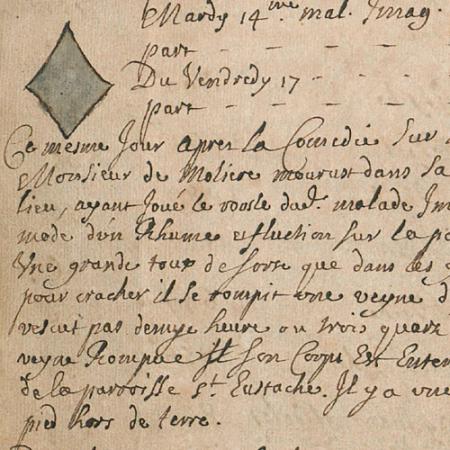 Mardy 14me mal. Imag.
part
Du Vendredy 17
part
Ce mesme Jour apres la Comedie sur
Monsieur de Moliere mourust dans sa
lieu, ayant Joué le roosle dud. malade Im
mode d'un Rhume et fluction sur la po
Une grande toux de sorte que dans
pour cracher il se rompit une veyne d
vescut pas demye heure ou trois quarz
veyne Rompue son Corps Est Enter
de la parroisse St. Eustache. Il y a une
pied hors de terre.